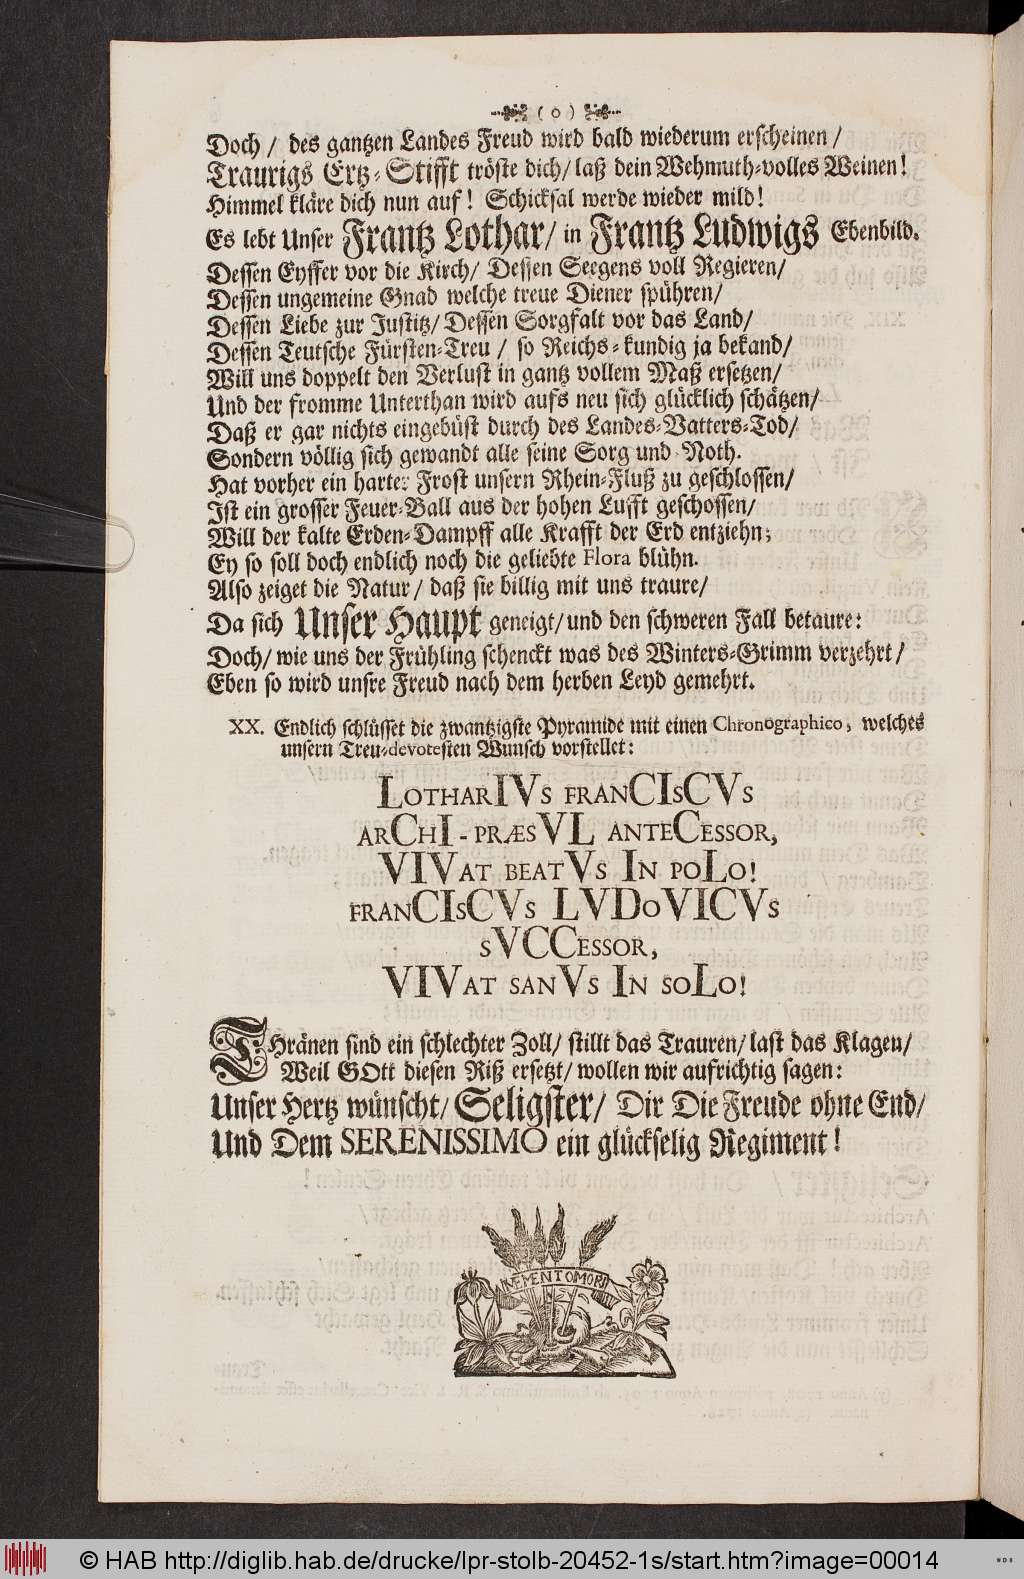 ( o )
Doch / des gantzen Landes Freud wird bald wiederum erscheinen /
Traurigs Ertz-Stifft tröste dich / laß dein Wehmuth-volles Weinen!
Himmel kläre dich nun auf! Schicksal werde wieder mild!
Es lebt Unser Frantz Lothar / in Frantz Ludwigs Ebenbild.
Dessen Eyffer vor die Kirch / Dessen Seegens voll Regieren /
Dessen ungemeine Gnad welche treue Diener spühren /
Dessen Liebe zur Justitz / Dessen Sorgfalt vor das Land /
Dessen Teutsche Fürsten-Treu / so Reichs-kundig ja bekand /
Will uns doppelt den Verlust in gantz vollem Maß ersetzen /
Und der fromme Unterthan wird aufs neu sich glücklich schätzen /
Daß er gar nichts eingebüst durch des Landes-Vatters-Tod /
Sondern völlig sich gewandt alle seine Sorg und Noth.
Hat vorher ein harter Frost unsern Rhein-Fluß zu geschlossen /
Ist ein grosser Feuer-Ball aus der hohen Lufft geschossen /
Will der kalte Erden-Dampff alle Krafft der Erd entziehn;
Ey so soll doch endlich noch die geliebte Flora blühn.
Also zeiget die Natur / daß sie billig mit uns traure /
Da sich Unser Haupt geneigt / und den schweren Fall betaure:
Doch / wie uns der Frühling schenckt was des Winters-Grimm verzehrt /
Eben so wird unsre Freud nach dem herben Leyd gemehrt.
XX. Endlich schlüsset die zwantzigste Pyramide mit einen Chronographico, welches
unsern Treu-devotesten Wunsch vorstellet:
LOTHARIVS FRANCISCVS
ARCHI-PRÆSVL ANTECESSOR,
VIVAT BEATVS IN POLO!
FRANCISCVS LVDOVICVS
SVCCESSOR,
VIVAT SANVS IN SOLO!
THränen sind ein schlechter Zoll / stillt das Trauren / last das Klagen /
Weil GOtt diesen Riß ersetzt / wollen wir aufrichtig sagen:
Unser Hertz wünscht / Seligster / Dir Die Freude ohne End /
Und Dem SERENISSIMO ein glückselig Regiment!
MEMENTO MORI
© HAB http://diglib.hab.de/drucke/lpr-stolb-20452-1s/start.htm?image=00014